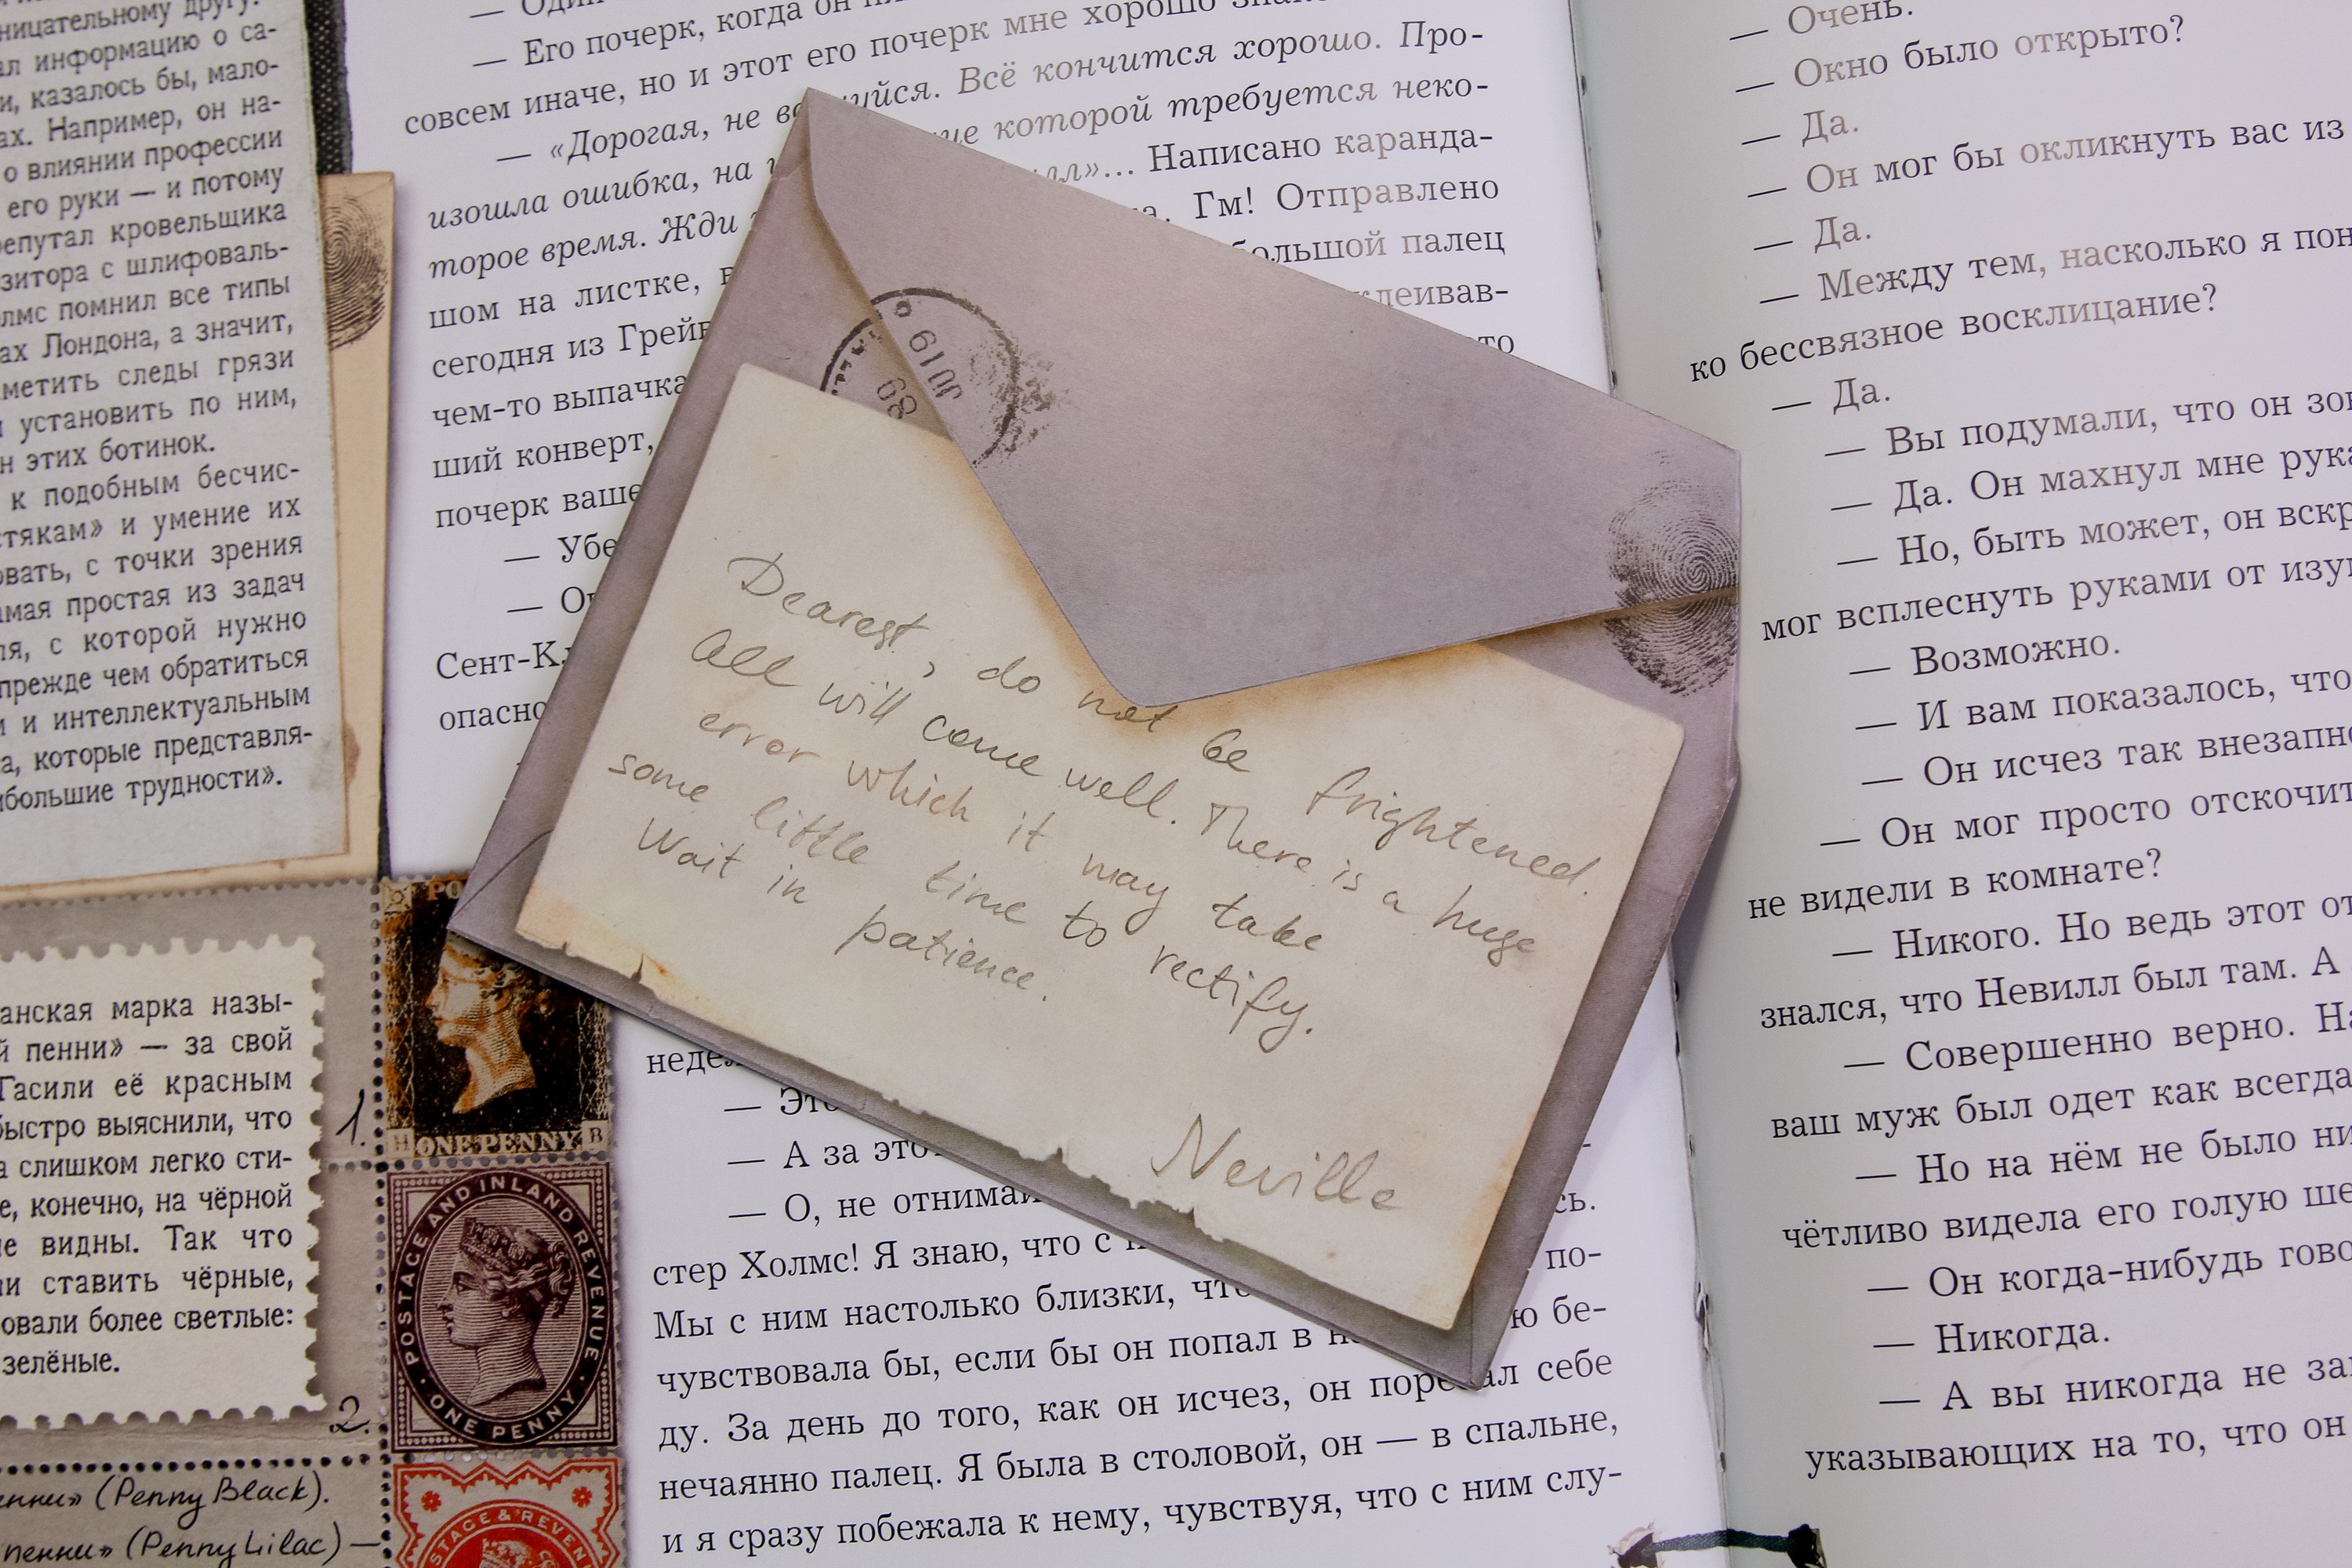 ницательному другу.
ал информацию о са-
и, казалось бы, мало-
ах. Например, он на-
о влиянии профессии
его руки — и потому
репутал кровельщика
зитора с шлифоваль-
олмс помнил все типы
ах Лондона, а значит,
метить следы грязи
и установить по ним,
н этих ботинок.
к подобным бесчис-
стякам» и умение их
овать, с точки зрения
мая простая из задач
ля, с которой нужно
прежде чем обратиться
и и интеллектуальным
а, которые представля-
ибольшие трудности».
анская марка назы-
й пенни» — за свой
Гасили её красным
быстро выяснили, что
а слишком легко сти-
е, конечно, на чёрной
не видны. Так что
ли ставить чёрные,
овали более светлые:
зелёные.
1.
2.
енни» (Penny Black).
пенни» (Penny Lilac) —
PO
H ONE PENNY B
POSTAGE AND INLAND REVENUE
ONE PENNY
STAGE & REVEN
— Один
— Его почерк, когда он
совсем иначе, но и этот его почерк мне хорошо
— «Дорогая, не во лнуйся. Всё кончится хорошо. Про-
изошла ошибка, на и ие которой требуется неко-
торое время. Жди лл»... Написано каранда-
шом на листке, в а. Гм! Отправлено
сегодня из Грейв большой палец
чем-то выпачка клеивав-
ший конверт, то
почерк ваше
— Убе
— Он
Сент-Кл
опасно
недел
— Это
— А за это
— О, не отнимай сь.
стер Холмс! Я знаю, что с н по-
Мы с ним настолько близки, что ю бе-
чувствовала бы, если бы он попал в н
ду. За день до того, как он исчез, он порезал себе
нечаянно палец. Я была в столовой, он — в спальне,
и я сразу побежала к нему, чувствуя, что с ним слу-
JU 19
89
Dearest, do not be frightened.
All will come well. There is a huge
error which it may take
some little time to rectify.
Wait in patience.
Neville
— Очень.
— Окно было открыто?
— Да.
— Он мог бы окликнуть вас из
— Да.
— Между тем, насколько я пон
ко бессвязное восклицание?
— Да.
— Вы подумали, что он зов
— Да. Он махнул мне рука
— Но, быть может, он вскр
мог всплеснуть руками от изум
— Возможно.
— И вам показалось, что
— Он исчез так внезапно
— Он мог просто отскочит
не видели в комнате?
— Никого. Но ведь этот от
знался, что Невилл был там. А
— Совершенно верно. На
ваш муж был одет как всегда
— Но на нём не было ни
чётливо видела его голую ше
— Он когда-нибудь гово
— Никогда.
— А вы никогда не за
указывающих на то, что он